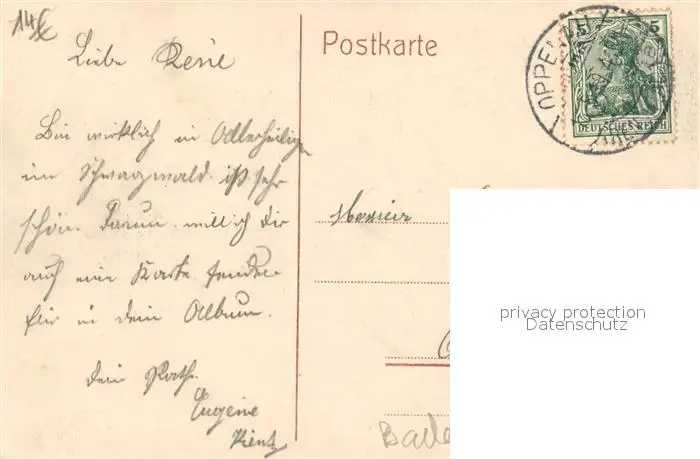 14/5
Liebe René
Postkarte
OPPENAU
5 5
DEUTSCHES REICH
Bin wirklich in Allerheiligen
im Schwarzwald. ist sehr
schön. Darum will ich Dir
auch eine Karte senden
für in dein Album.
Dein Path.
Eugène
Kientz
Monsieur
privacy protection
Datenschutz
Bade